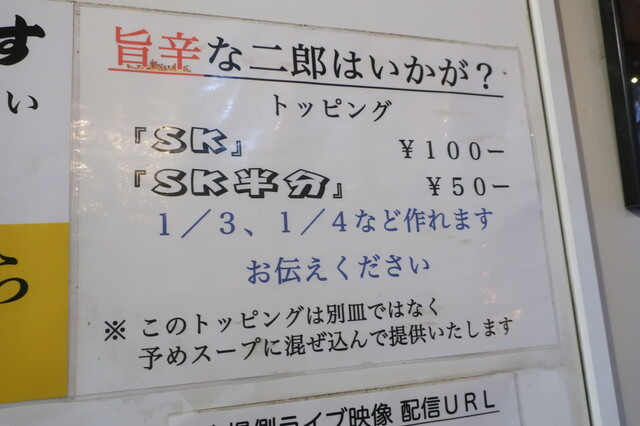 す
い
ら
旨辛な二郎はいかが？
トッピング
『SK』 ￥１００ー
『SK半分』 ￥５０ー
１／３、１／４など作れます
お伝えください
※ このトッピングは別皿ではなく
予めスープに混ぜ込んで提供いたします
側ライブ映像 配信ＵＲＬ